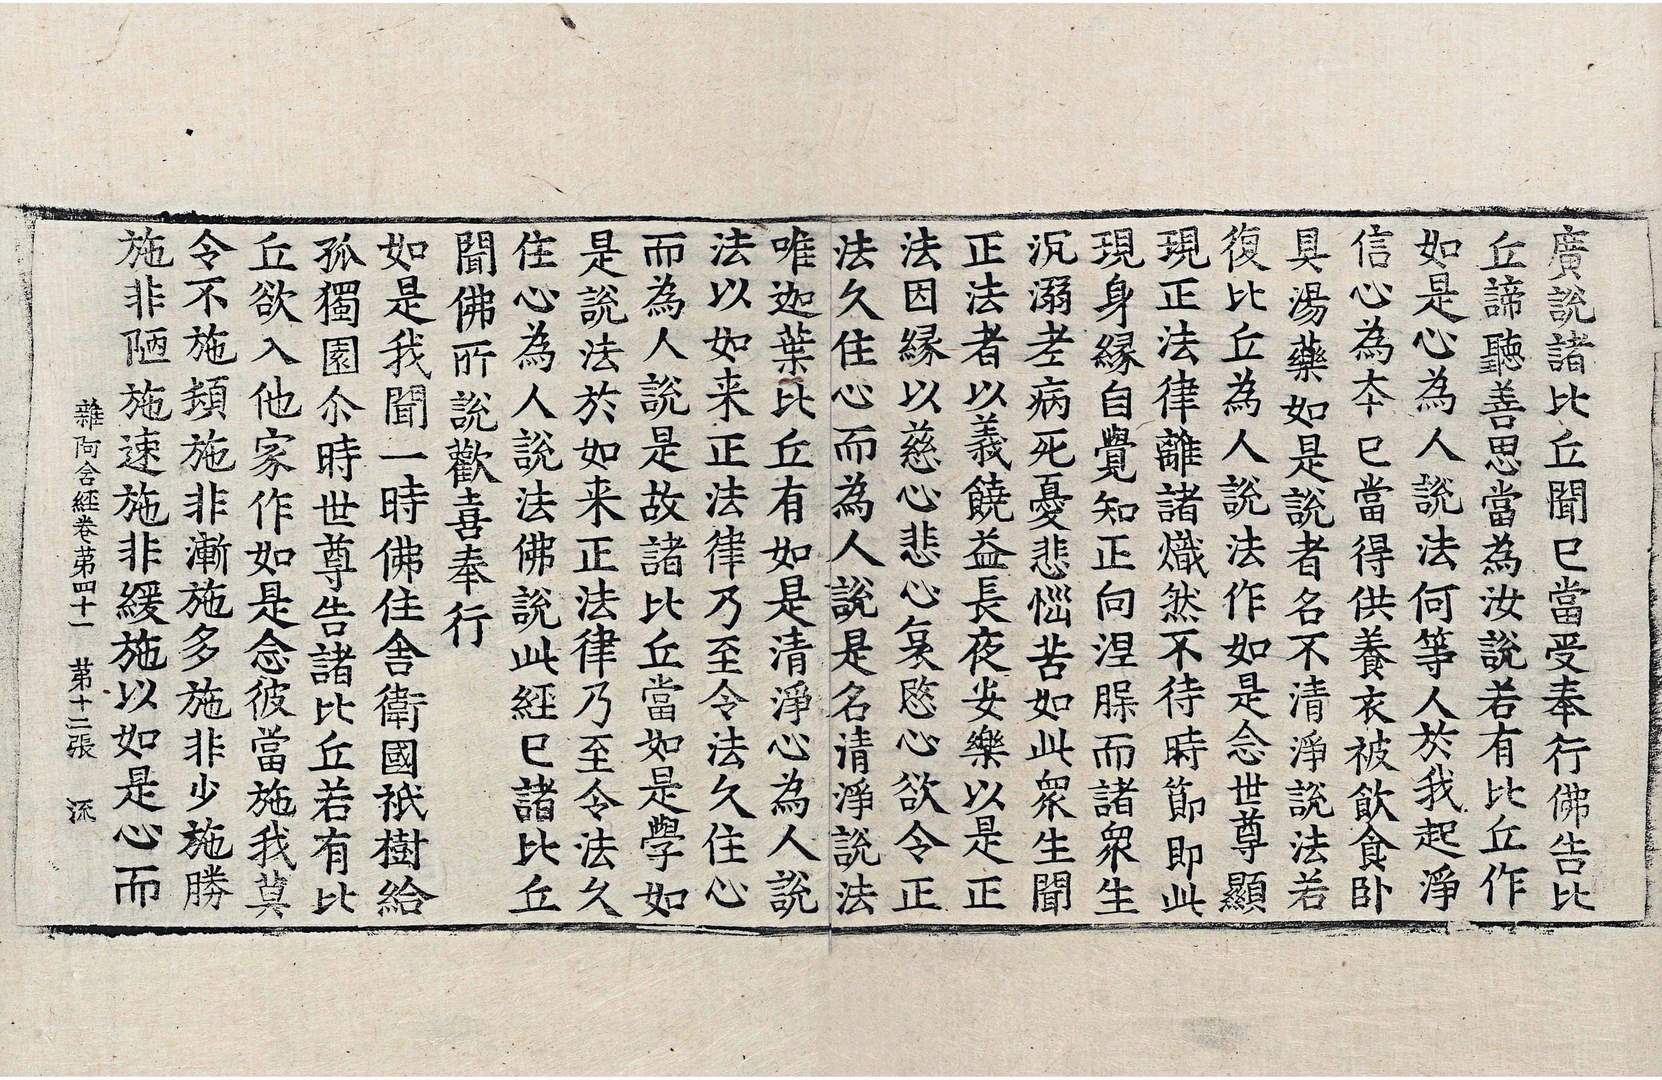 廣說諸比丘聞已當受奉行佛告比
丘諦聽善思當為汝說若有比丘作
如是心為人說法何等人於我起淨
信心為夲已當得供養衣被飲食卧
具湯藥如是說者名不清淨說法若
復比丘為人說法作如是念世尊顯
現正法律離諸熾然不待時節即此
現身緣自覺知正向涅槃而諸衆生
沉溺老病死憂悲惱苦如此衆生聞
正法者以義饒益長夜安樂以是正
法因緣以慈心悲心哀愍心欲令正
法久住心而為人說是名清淨說法
唯迦葉比丘有如是清淨心為人說
法以如来正法律乃至令法久住心
而為人說是故諸比丘當如是學如
是說法於如来正法律乃至令法久
住心為人說法佛說此經已諸比丘
聞佛所說歡喜奉行
如是我聞一時佛住舍衛國祇樹給
孤獨園尒時世尊告諸比丘若有比
丘欲入他家作如是念彼當施我莫
令不施頓施非漸施多施非少施勝
施非陋施速施非緩施以如是心而
雜阿含經卷第四十一 第十二張 流